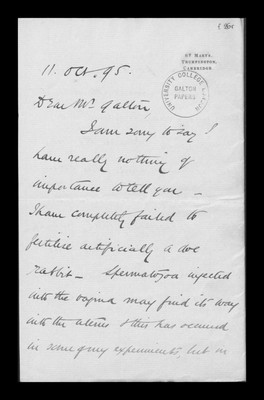 ( 1895
ST MARYS,
TRUMPINGTON,
CAMBRIDGE.
UNIVERSITY COLLEGE LONDON
GALTON
PAPERS
11. Oct. 95.
Dear Mr Galton,
I am sorry to say I
have really nothing of
importance to tell you —
I have completely failed to
fertilise artificially a doe
rabbit — Spermatozoa injected
into the vagina may find its way
into the uterus & this has occurred
in some of my experiments, but on